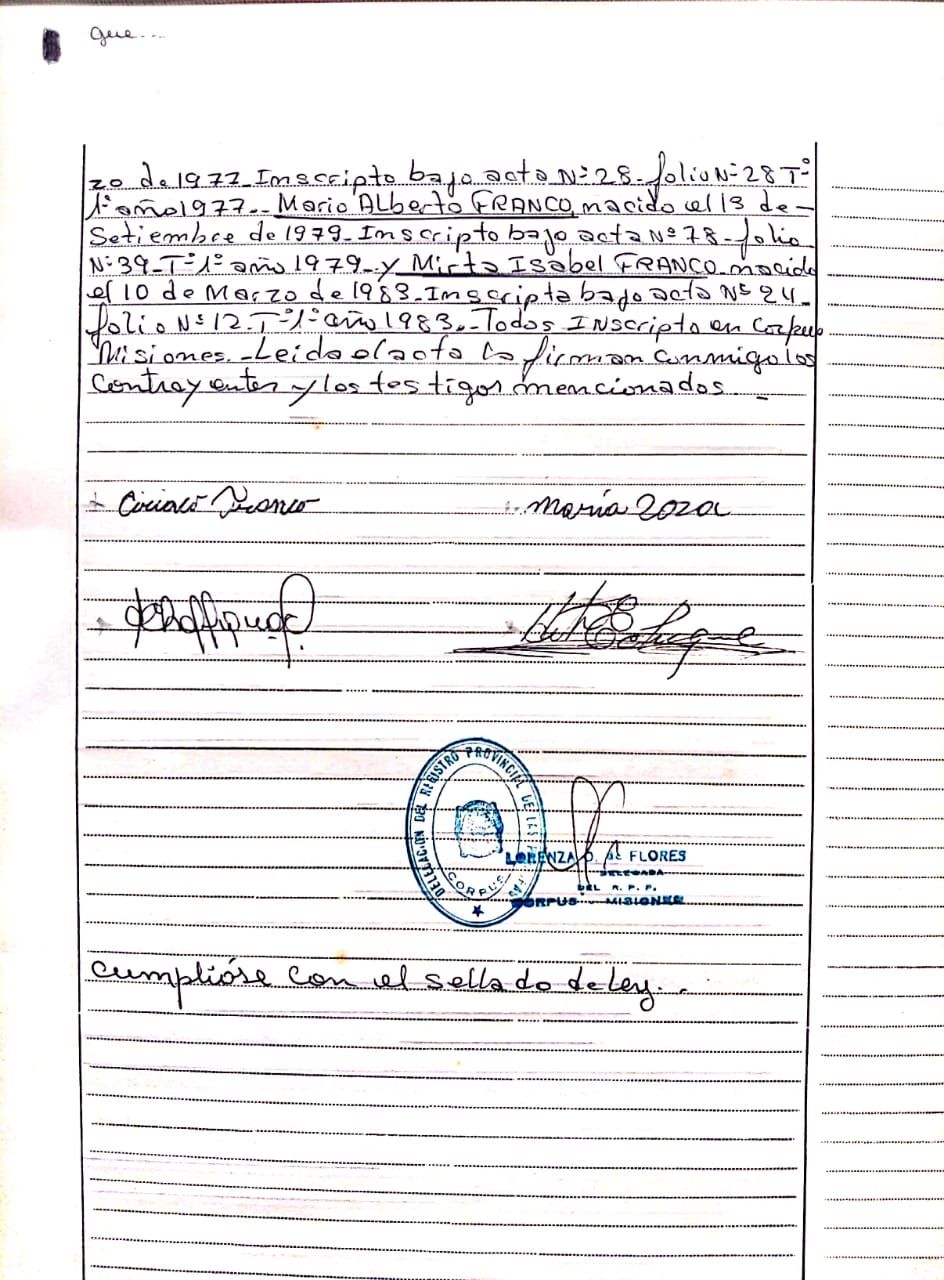 que...
zo de 1977_Inscripto bajo acta Nº 28_folio Nº 28 Tº
1º año 1977.- Mario ALberto FRANCO, nacido el 13 de-
Setiembre de 1979_Inscripto bajo acta Nº 78_folio
Nº 39_Tº 1º año 1979_y Mirta ISabel FRANCO_nacida
el 10 de Marzo de 1983_Inscripta bajo acta Nº 24_
folio Nº 12_Tº 1º año 1983._Todos INscripto en Corpus
Misiones._Leida el acta la firman conmigo los
Contrayentes y los testigos mencionados._
Ciriaco Franco
maría Zoza
DELEGACION DEL REGISTRO PROVINCIAL DE LAS
CORPUS
LORENZA D. de FLORES
DELEGADA
DEL R. P. P.
CORPUS - MISIONES
Cumplióse con el sellado de Ley..